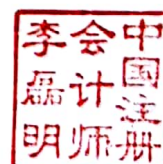 中国注册
会计师
李磊明